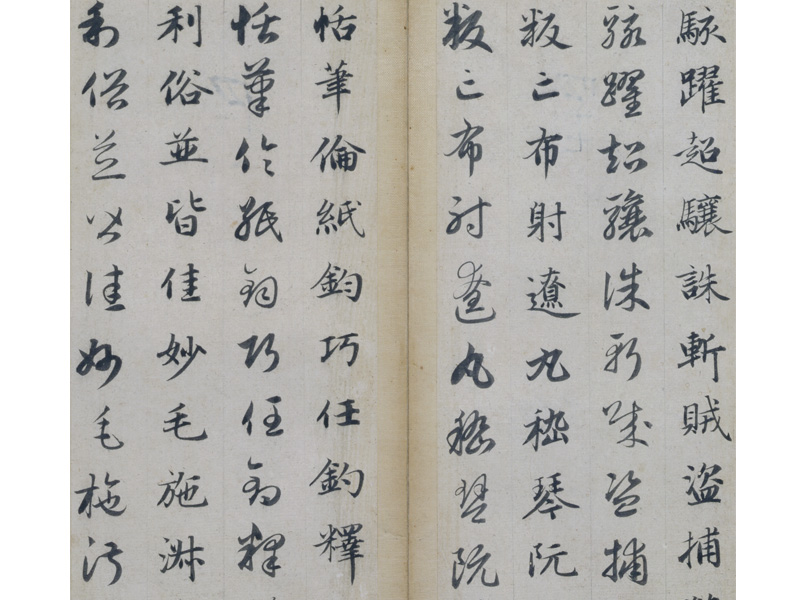 駭躍超驤誅斬賊盜捕
駭躍超驤誅斬賊盜捕
叛亡布射遼丸嵇琴阮
叛亡布射遼丸嵇琴阮
恬筆倫紙鈞巧任釣釋
恬筆倫紙鈞巧任釣釋
利俗並皆佳妙毛施淑
利俗並皆佳妙毛施淑